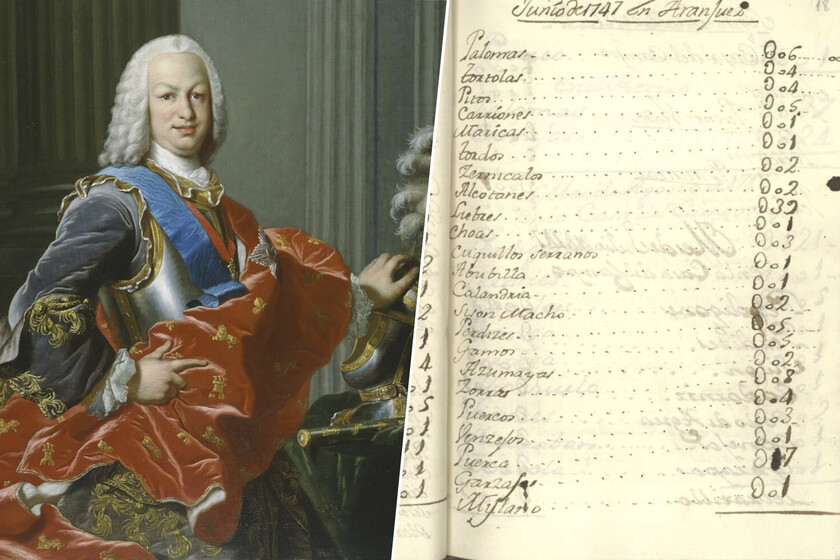 Junio de 1747 en Aranjuez
18
Palomas 006
tortolas 004
Pitos 004
Carriones 005
Maricas 001
tordos 001
Zernicalos 002
Alcotanes 002
Liebres 039
Choas 001
Cuquillos serranos 003
Abubilla 001
Calandria 001
Sison Macho 002
Perdizes 005
Gamos 005
Azumayas 002
Zorras 008
Puercos 004
Venzejos 003
Puerca 001
Garzas 017
Mylano 001